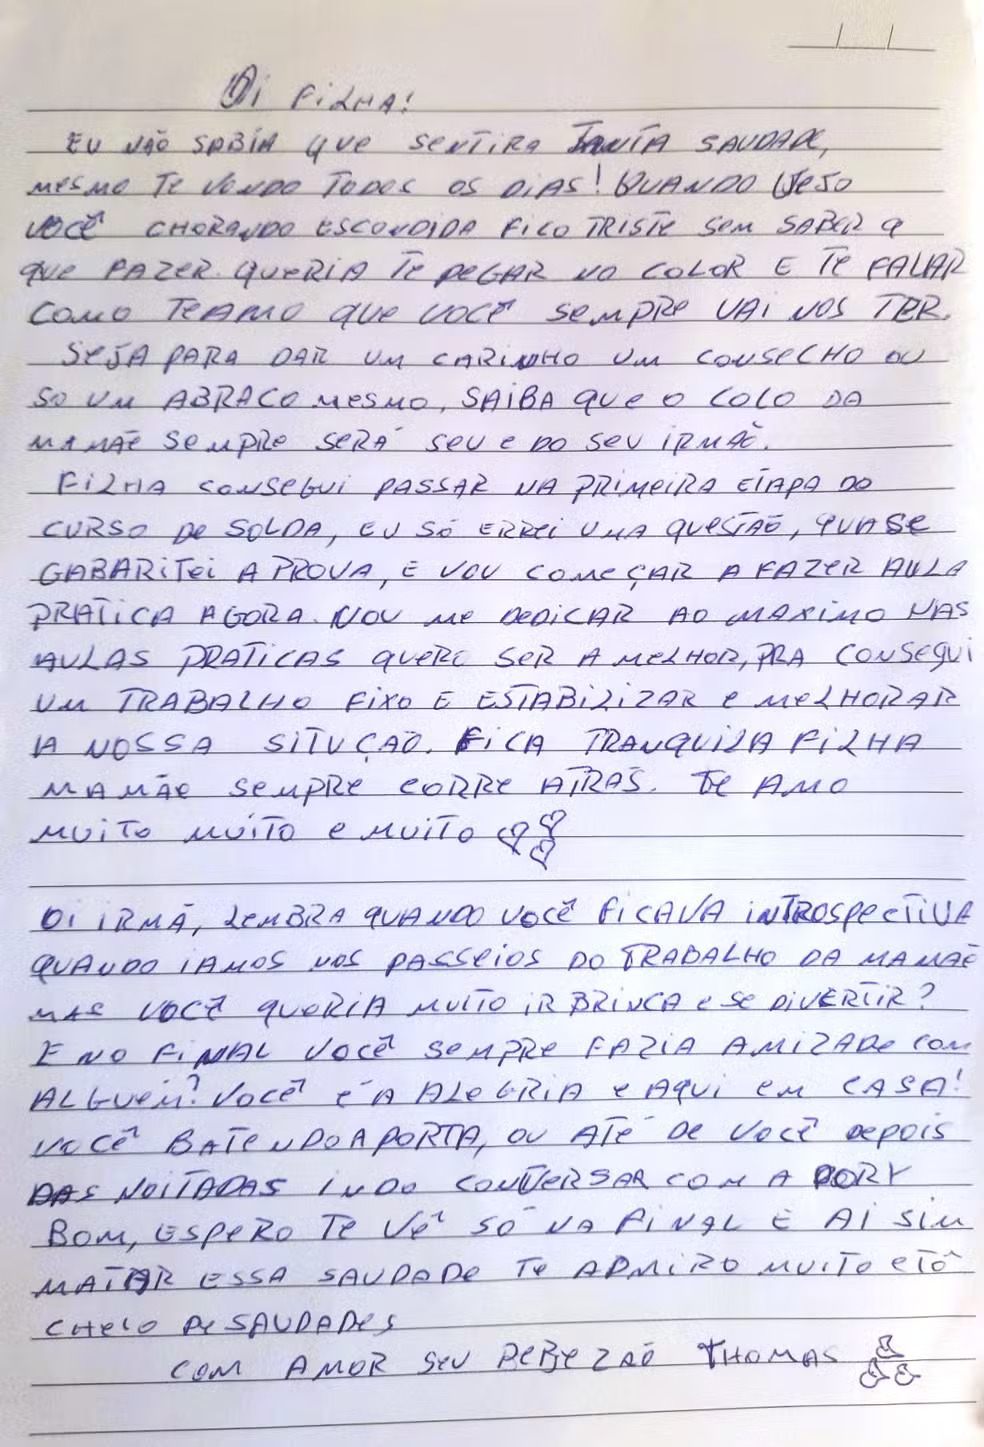 Oi FiLHA!
EU NÃO SABIA QUE SENTIRA TANTA SAUDADE,
MESMO TE VENDO TODOS OS DIAS! QUANDO VEJO
VOCÊ CHORANDO ESCONDIDA FICO TRISTE SEM SABER O
QUE FAZER. QUERIA TE PEGAR NO COLOR E TE FALAR
COMO TEAMO QUE VOCÊ SEMPRE VAI NOS TER.
SEJA PARA DAR UM CARINHO UM CONSELHO OU
SO UM ABRACO MESMO, SAIBA QUE O COLO DA
MAMÃE SEMPRE SERÁ SEU E DO SEU IRMÃO.
FILHA CONSEGUI PASSAR NA PRIMEIRA ETAPA DO
CURSO DE SOLDA, EU SÓ ERREI UMA QUESTÃO, QUASE
GABARITEI A PROVA, E VOU COMEÇAR A FAZER AULA
PRATICA AGORA. VOU ME DEDICAR AO MAXIMO NAS
AULAS PRATICAS QUERO SER A MELHOR, PRA CONSEGUI
UM TRABALHO FIXO E ESTABILIZAR E MELHORAR
A NOSSA SITUÇÃO. FICA TRANQUILA FILHA
MAMÃE SEMPRE CORRE ATRAS. TE AMO
MUITO MUITO E MUITO
OI IRMÃ, LEMBRA QUANDO VOCÊ FICAVA INTROSPECTIVA
QUANDO IAMOS NOS PASSEIOS DO TRABALHO DA MAMÃE
MAS VOCÊ QUERIA MUITO IR BRINCA E SE DIVERTIR?
E NO FINAL VOCÊ SEMPRE FAZIA AMIZADE COM
ALGUEM? VOCÊ É A ALEGRIA E AQUI EM CASA!
VOCÊ BATENDO A PORTA, OU ATÉ DE VOCÊ DEPOIS
DAS NOITADAS INDO CONVERSAR COM A DORY
BOM, ESPERO TE VÊ SÓ NA FINAL E AI SIM
MATAR ESSA SAUDADE TE ADMIRO MUITO E TÔ
CHEIO DE SAUDADES
COM AMOR SEU BEBEZÃO THOMAS